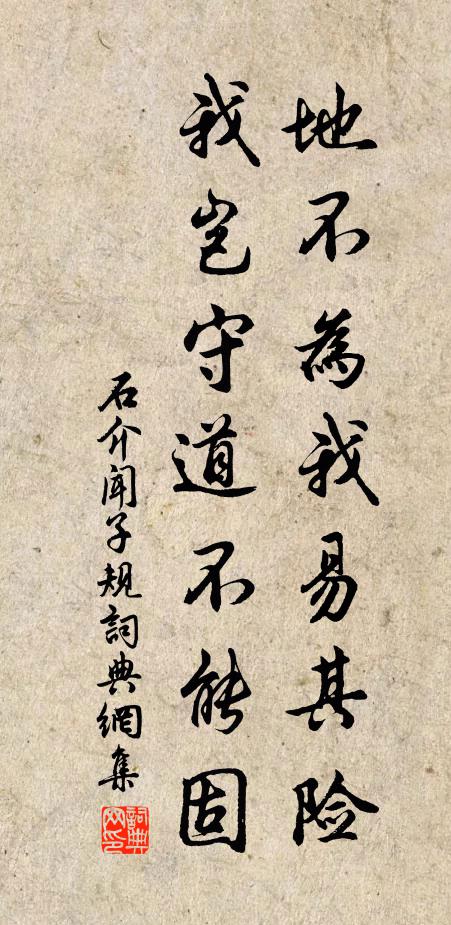 地不為我易其险
我岂守道不能固
石介闻子规詞典網集
詞典网印